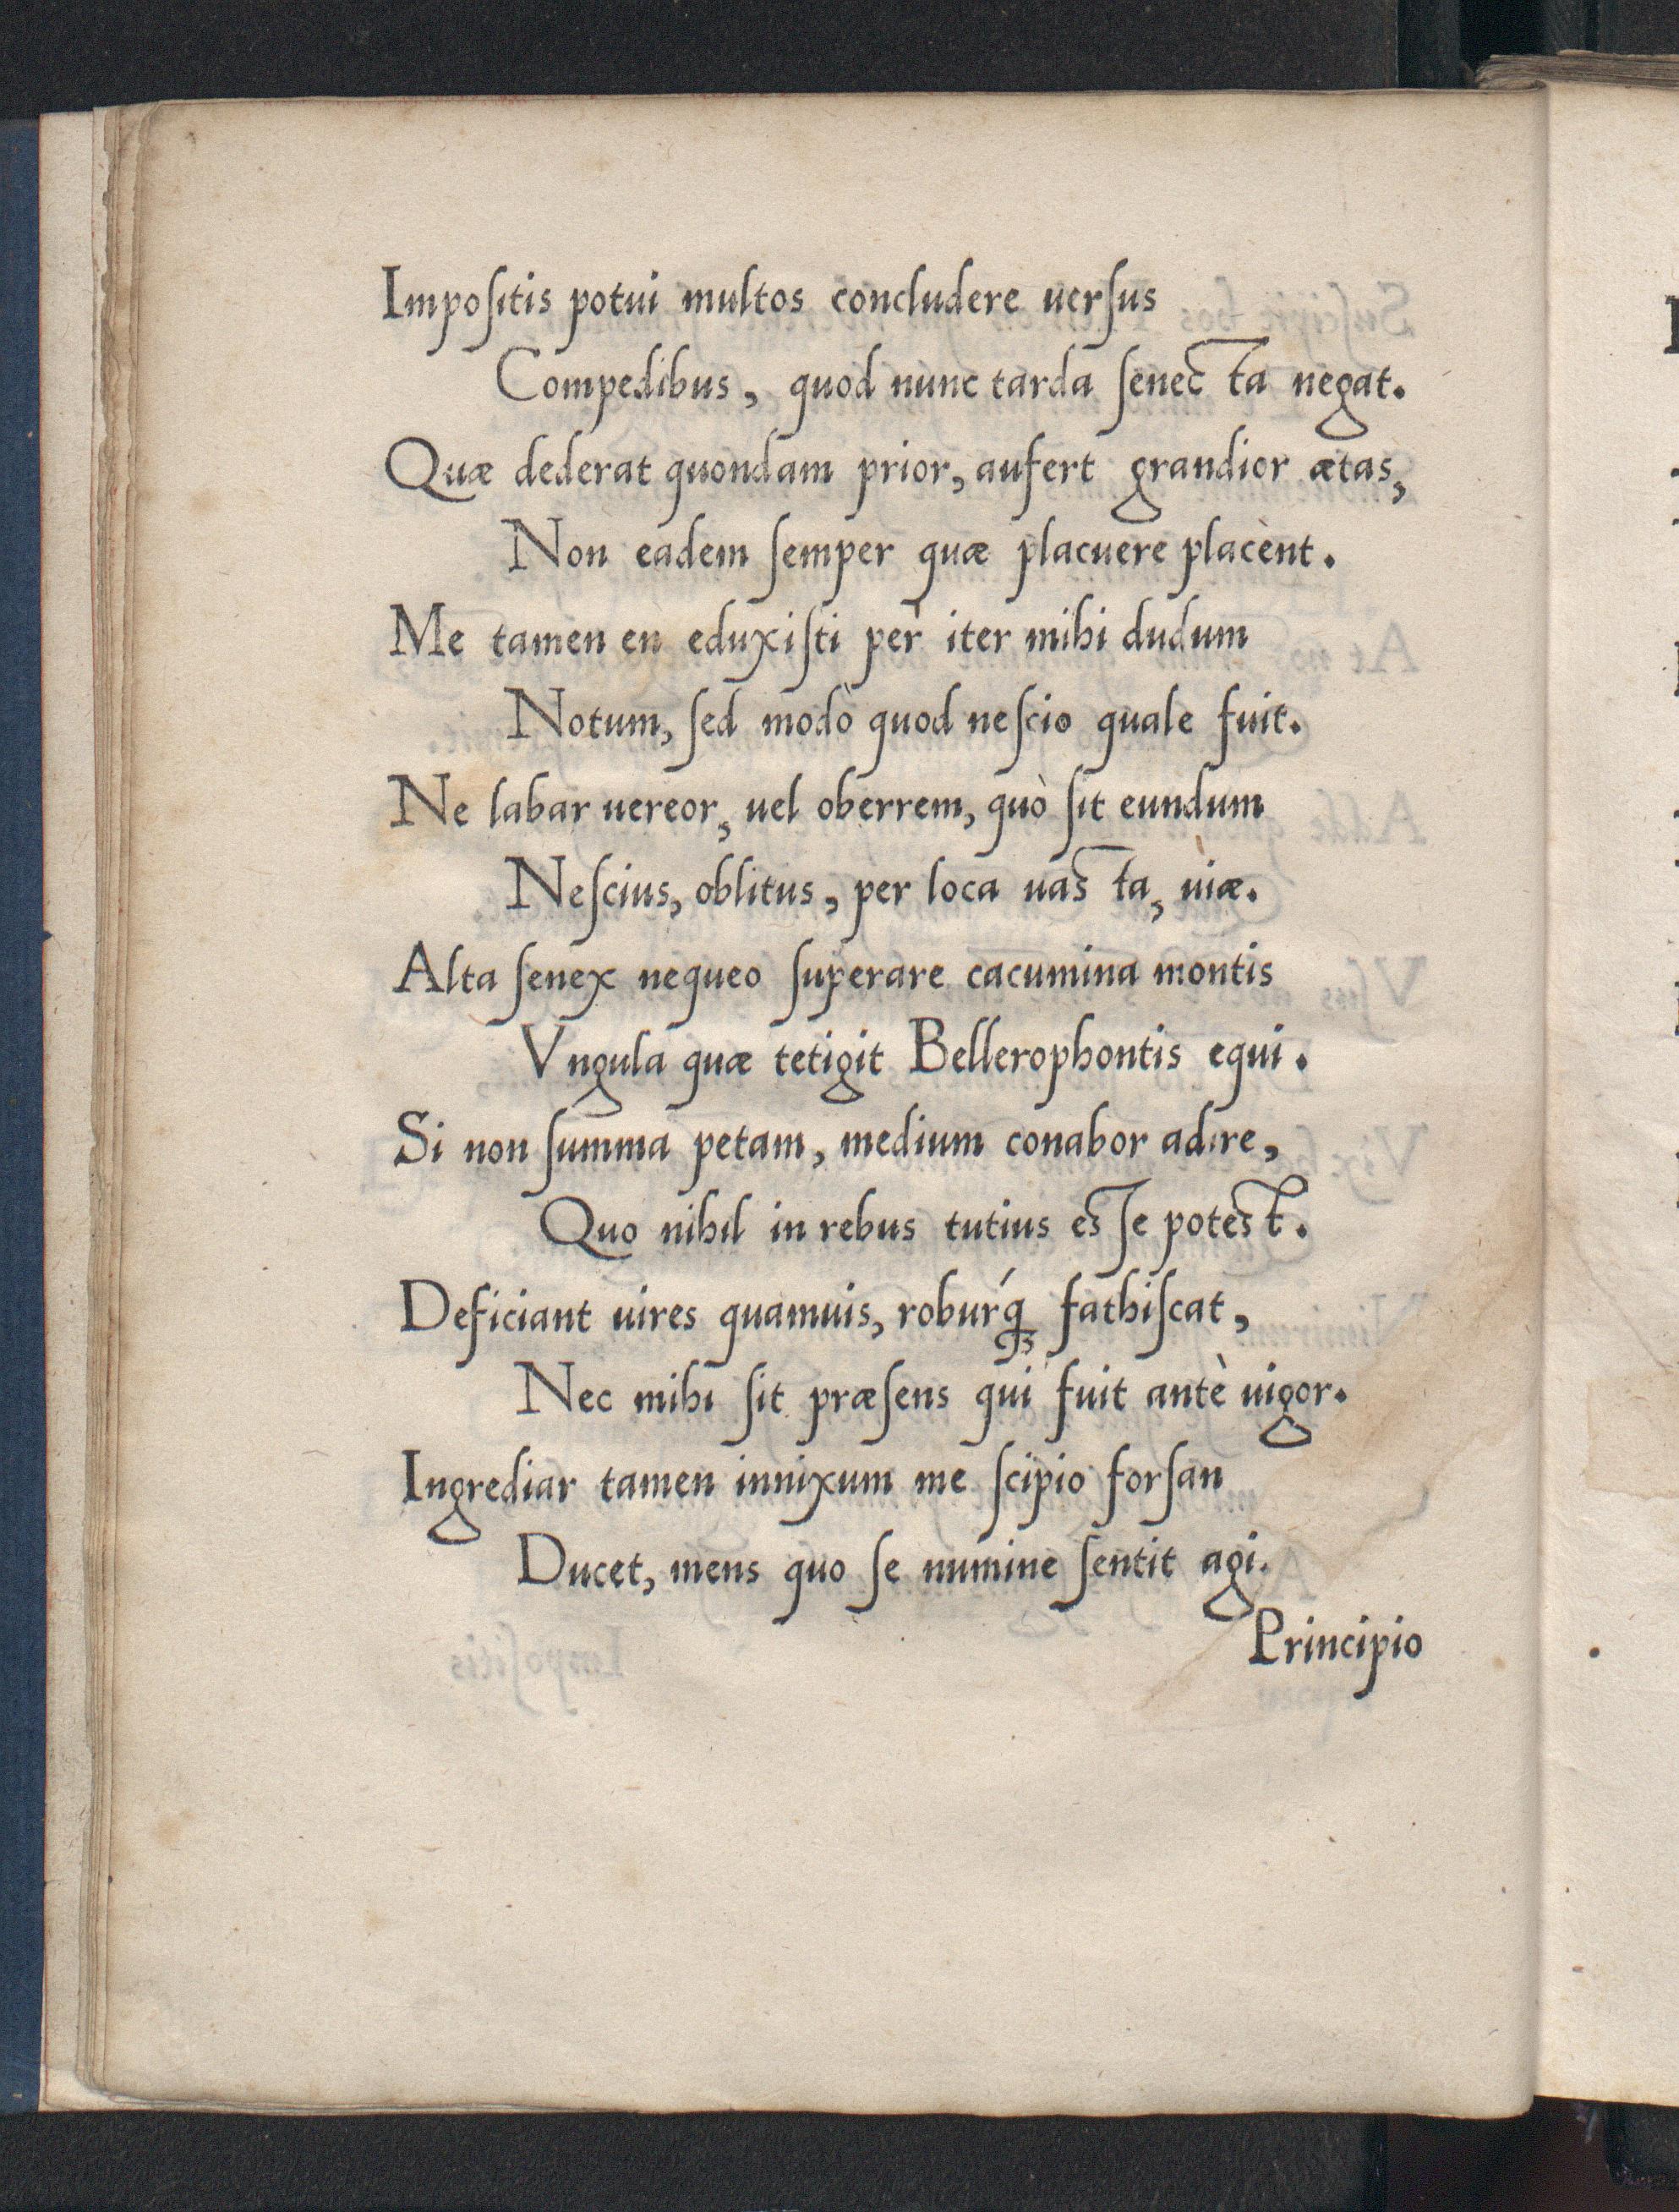 Impoſitis potui multos concludere uerſus
Compedibus, quod nunc tarda ſenecta negat.
Quæ dederat quondam prior, aufert grandior ætas,
Non eadem ſemper quæ placuere placent.
Me tamen en eduxiſti per iter mihi dudum
Notum, ſed modò quod neſcio quale fuit.
Ne labar uereor, uel oberrem, quò ſit eundum
Neſcius, oblitus, per loca uasta, uiæ.
Alta ſenex nequeo ſuperare cacumina montis
Vngula quæ tetigit Bellerophontis equi.
Si non ſumma petam, medium conabor adire,
Quo nihil in rebus tutius esſe potest.
Deficiant uires quamuis, roburq́ꝫ fathiſcat,
Nec mihi ſit præſens qui fuit antè uigor.
Ingrediar tamen innixum me ſcipio forſan
Ducet, mens quo ſe numine ſentit agi.
Principio